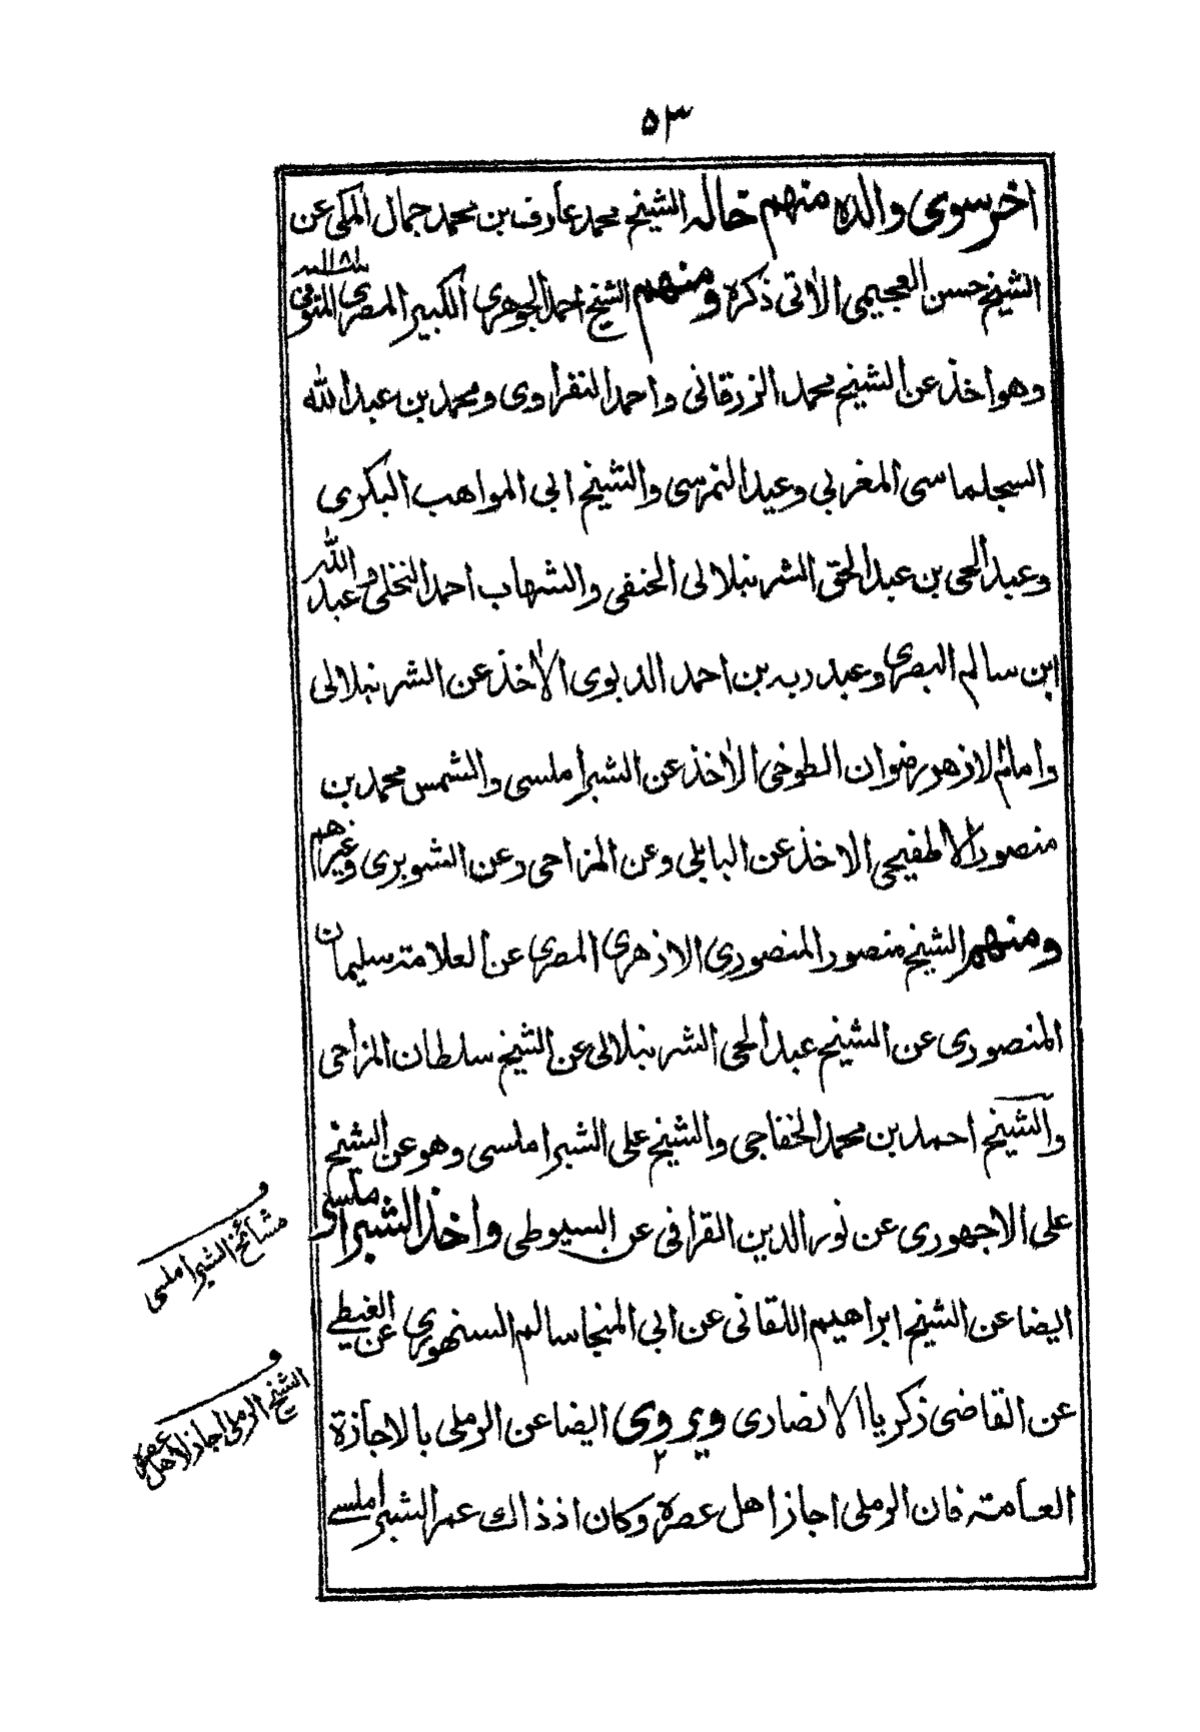 ٥٣
اخر سوی والده منهم خاله الشیخ محمد عارف بن محمد جمال المکی عن
الشیخ حسن العجیمی الاٰتی ذکره ومنهم الشیخ احمد الجوهری الکبیر المصری المتوفی
وهو اخذ عن الشیخ محمد الزرقانی واحمد النفراوی ومحمد بن عبد الله
السجلماسی المغربی وعید النمرسی والشیخ ابی المواهب البکری
وعبد الحی بن عبد الحق الشرنبلالی الحنفی والشهاب احمد النخلی وعبد الله
ابن سالم البصری وعبد ربه بن احمد الدیوی الاٰخذ عن الشرنبلالی
وامام الازهر رضوان الطوخی الاٰخذ عن الشبراملسی والشمس محمد بن
منصور الاطفیحی الاخذ عن البابلی وعن المزاحی وعن الشوبری وغیرهم
ومنهم الشیخ منصور المنصوری الازهری المصری عن العلامة سلیمان
المنصوری عن الشیخ عبد الحی الشرنبلالی عن الشیخ سلطان المزاحی
والشیخ احمد بن محمد الخفاجی والشیخ علی الشبراملسی وهو عن الشیخ
علی الاجهوری عن نور الدین القرافی عن السیوطی واخذ الشبراملسی
ایضا عن الشیخ ابراهیم اللقانی عن ابی المنجا سالم السنهوری عن الغیطی
عن القاضی زکریا الانصاری ویروی ایضا عن الرملی بالاجازة
العامة فان الرملی اجاز اهل عصره وکان اذ ذاك عمر الشبراملسی
و
مشائخ الشبراملسی
و
الشیخ الرملی اجاز لاهل عصره